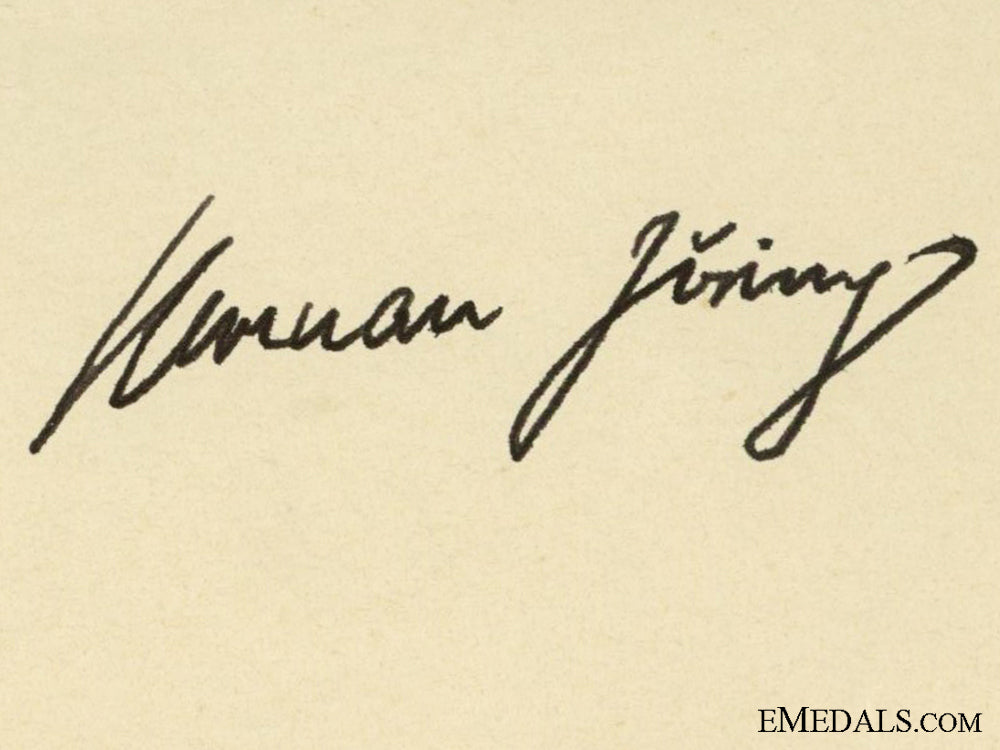 Herman Göring
EMEDALS.COM